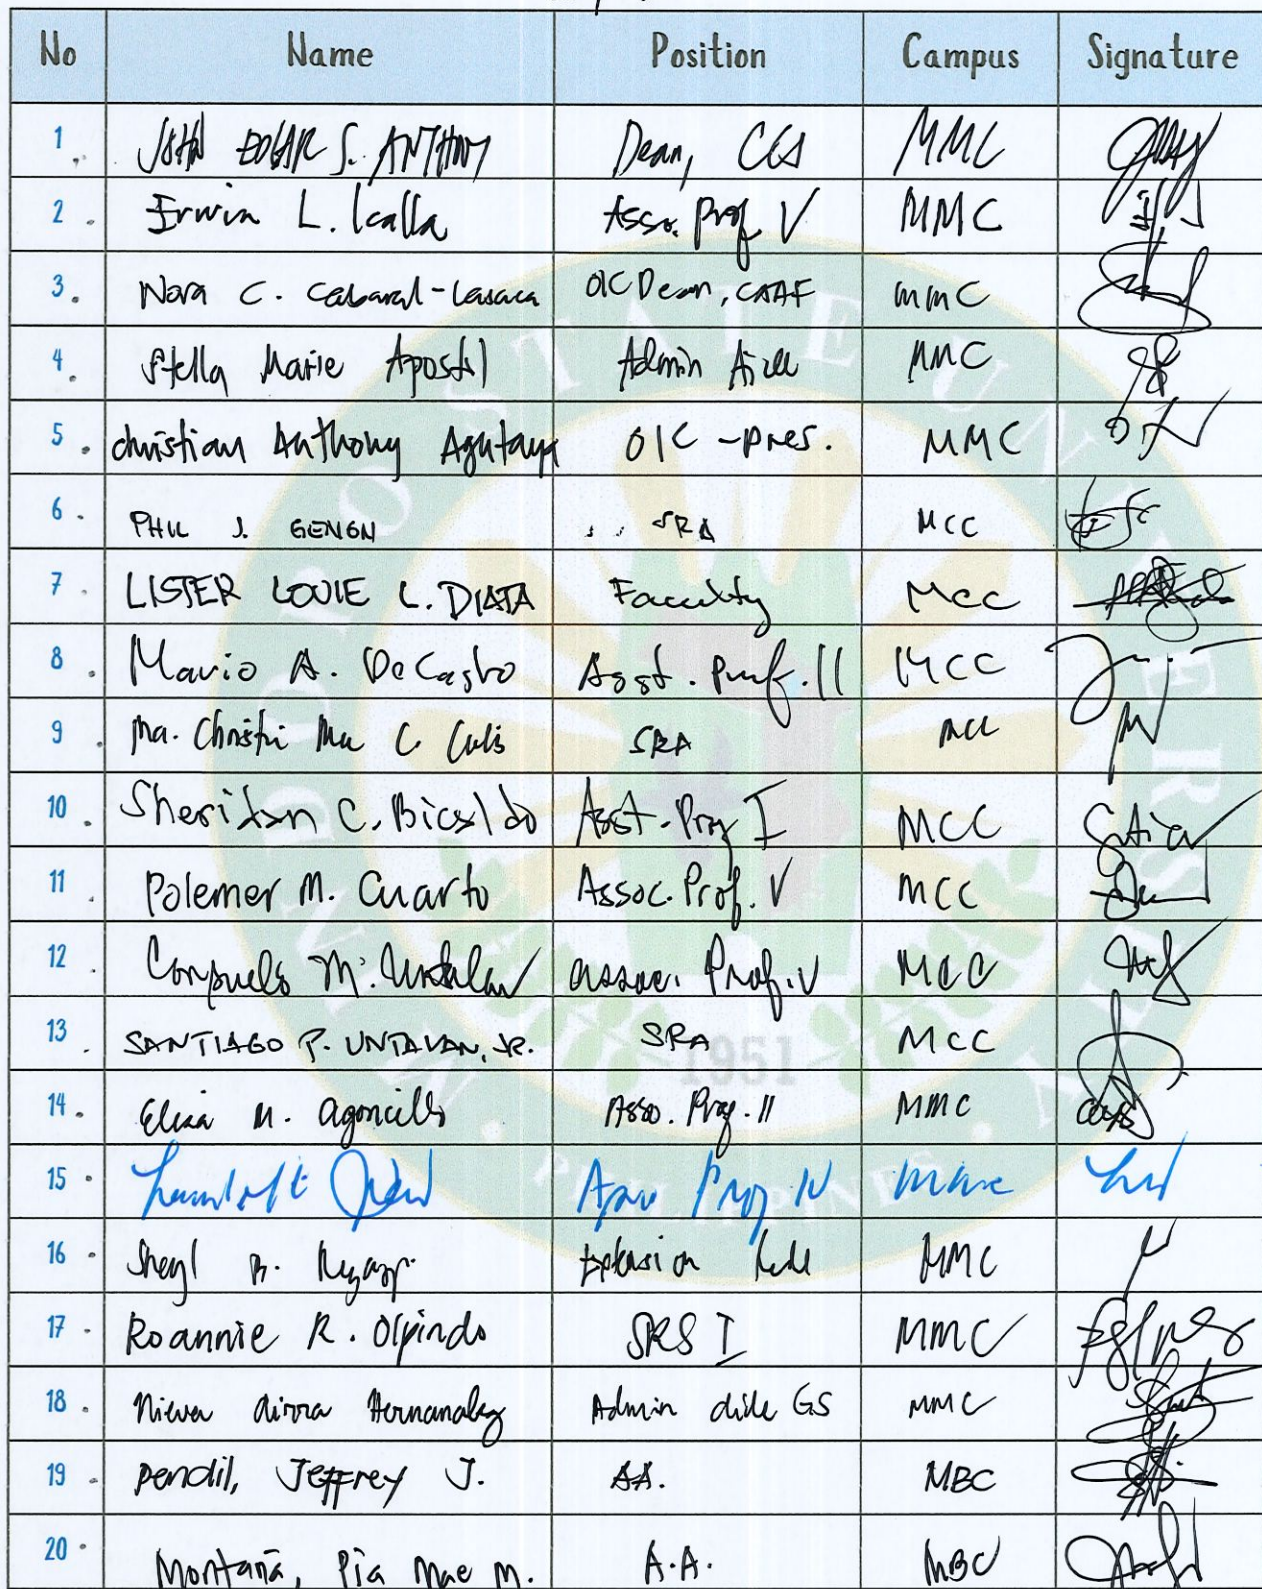 No Name Position Campus Signature
1 JOHN EDGAR S. ANTHONY Dean, CCS MMC
2 Erwin L. Icalla Asso. Prof V MMC
3 Nora C. Cabaral-Lasaca OIC Dean, CAAF MMC
4 Stella Marie Apostol Admin Aide MMC
5 Christian Anthony Agutaya OIC - pres. MMC
6 PHIL J. GENGN SRA MCC
7 LISTER LOUIE L. DIATA Faculty MCC
8 Mario A. De Castro Asst. Prof. II MCC
9 Ma. Christi C. SRA MCC
10 Sheridan C. Bicaldo Asst. Prof I MCC
11 Polemer M. Cuarto Assoc. Prof. V MCC
12 M. Assoc. Prof. V MCC
13 SANTIAGO P. UNTALAN, JR. SRA MCC
14 Eliza M. Agoncillo Asso. Prof. II MMC
15 Prof IV MMC
16 Sheryl B. Extension MMC
17 Roannie R. Olpindo SRS I MMC
18 Nieva Airra Hernandez Admin aide GS MMC
19 Pendil, Jeffrey J. AA. MBC
20 Montaña, Pia Mae M. A.A. MBC
MINDORO STATE UNIVERSITY
1951
PHILIPPINES